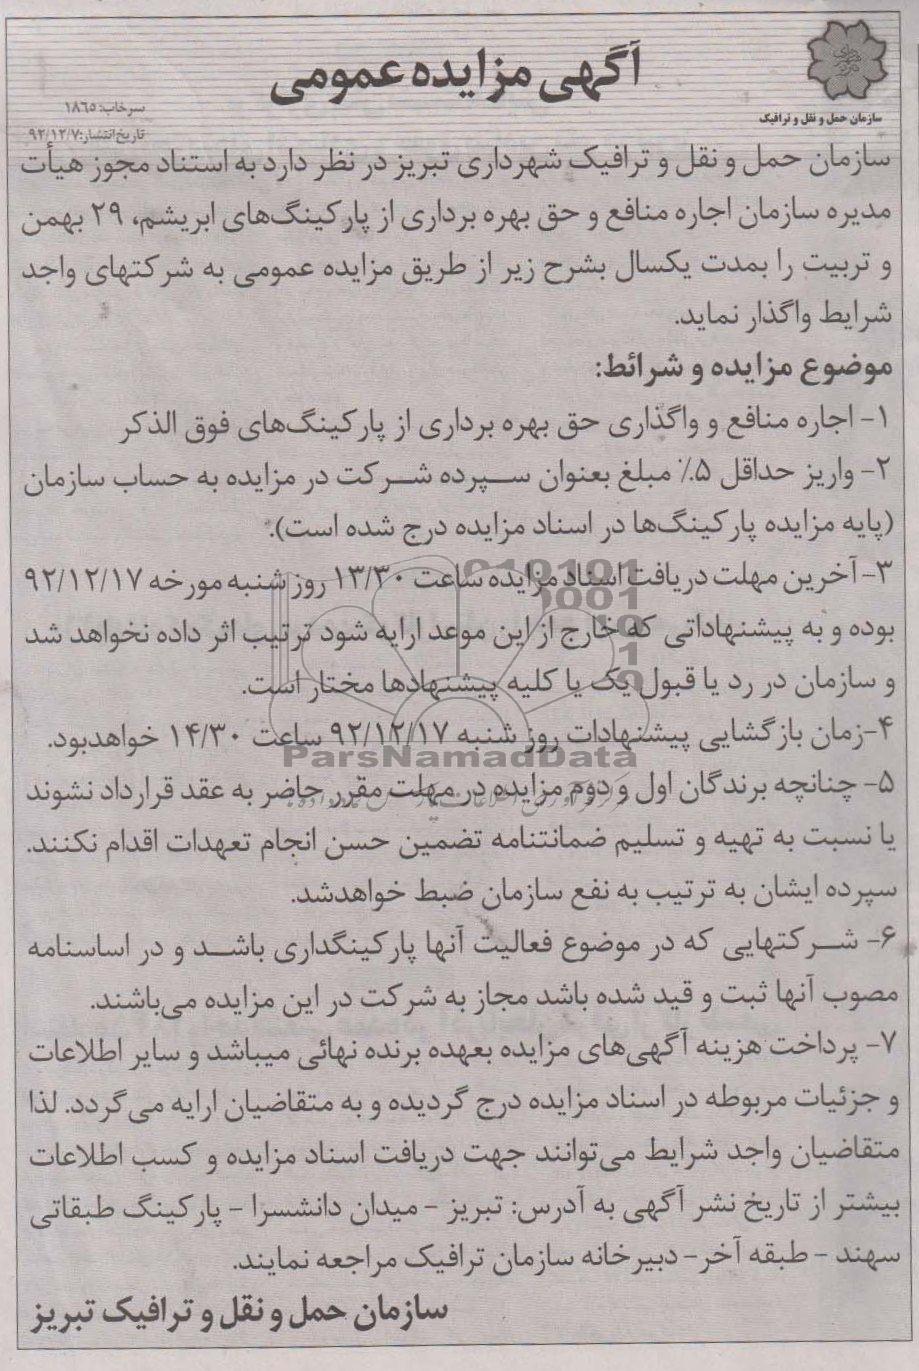 آگهی مزایده عمومی
سازمان حمل و نقل و ترافیک
سرخاب: ۱۸۶۵
تاریخ انتشار: ۹۲/۱۲/۷
سازمان حمل و نقل و ترافیک شهرداری تبریز در نظر دارد به استناد مجوز هیأت
مدیره سازمان اجاره منافع و حق بهره برداری از پارکینگ‌های ابریشم، ۲۹ بهمن
و تربیت را بمدت یکسال بشرح زیر از طریق مزایده عمومی به شرکتهای واجد
شرایط واگذار نماید.
موضوع مزایده و شرائط:
۱- اجاره منافع و واگذاری حق بهره برداری از پارکینگ‌های فوق الذکر
۲- واریز حداقل ۵٪ مبلغ بعنوان سپرده شرکت در مزایده به حساب سازمان
(پایه مزایده پارکینگ‌ها در اسناد مزایده درج شده است).
۳- آخرین مهلت دریافت اسناد مزایده ساعت ۱۳/۳۰ روز شنبه مورخه ۹۲/۱۲/۱۷
بوده و به پیشنهاداتی که خارج از این موعد ارایه شود ترتیب اثر داده نخواهد شد
و سازمان در رد یا قبول یک یا کلیه پیشنهادها مختار است.
۴-زمان بازگشایی پیشنهادات روز شنبه ۹۲/۱۲/۱۷ ساعت ۱۴/۳۰ خواهدبود.
ParsNamadData
۵- چنانچه برندگان اول و دوم مزایده در مهلت مقرر حاضر به عقد قرارداد نشوند
یا نسبت به تهیه و تسلیم ضمانتنامه تضمین حسن انجام تعهدات اقدام نکنند.
سپرده ایشان به ترتیب به نفع سازمان ضبط خواهدشد.
۶- شرکتهایی که در موضوع فعالیت آنها پارکینگداری باشد و در اساسنامه
مصوب آنها ثبت و قید شده باشد مجاز به شرکت در این مزایده می‌باشند.
۷- پرداخت هزینه آگهی‌های مزایده بعهده برنده نهائی میباشد و سایر اطلاعات
و جزئیات مربوطه در اسناد مزایده درج گردیده و به متقاضیان ارایه می‌گردد. لذا
متقاضیان واجد شرایط می‌توانند جهت دریافت اسناد مزایده و کسب اطلاعات
بیشتر از تاریخ نشر آگهی به آدرس: تبریز - میدان دانشسرا - پارکینگ طبقاتی
سهند - طبقه آخر- دبیرخانه سازمان ترافیک مراجعه نمایند.
سازمان حمل و نقل و ترافیک تبریز